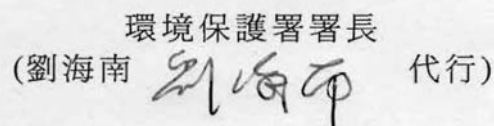 環境保護署署長
(劉海南 劉海南 代行)